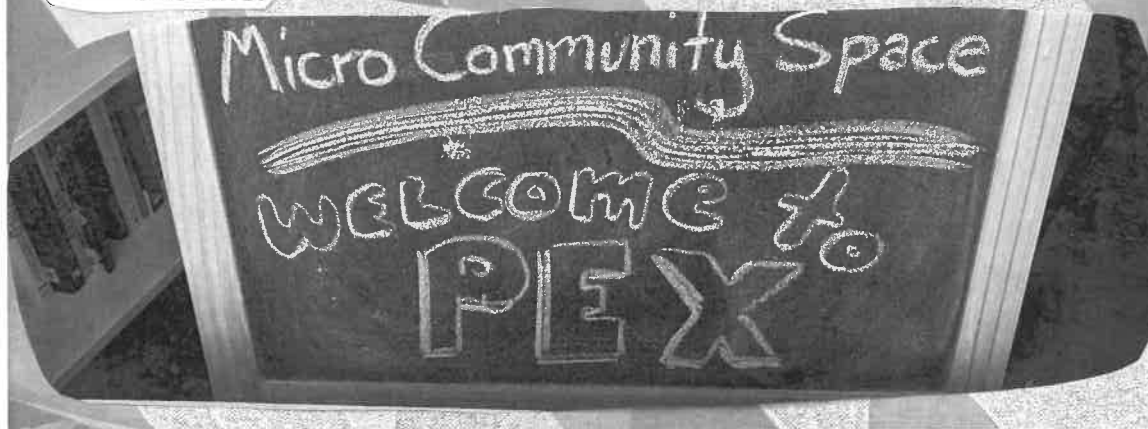 Micro Community Space
WELCOMe to
PEX